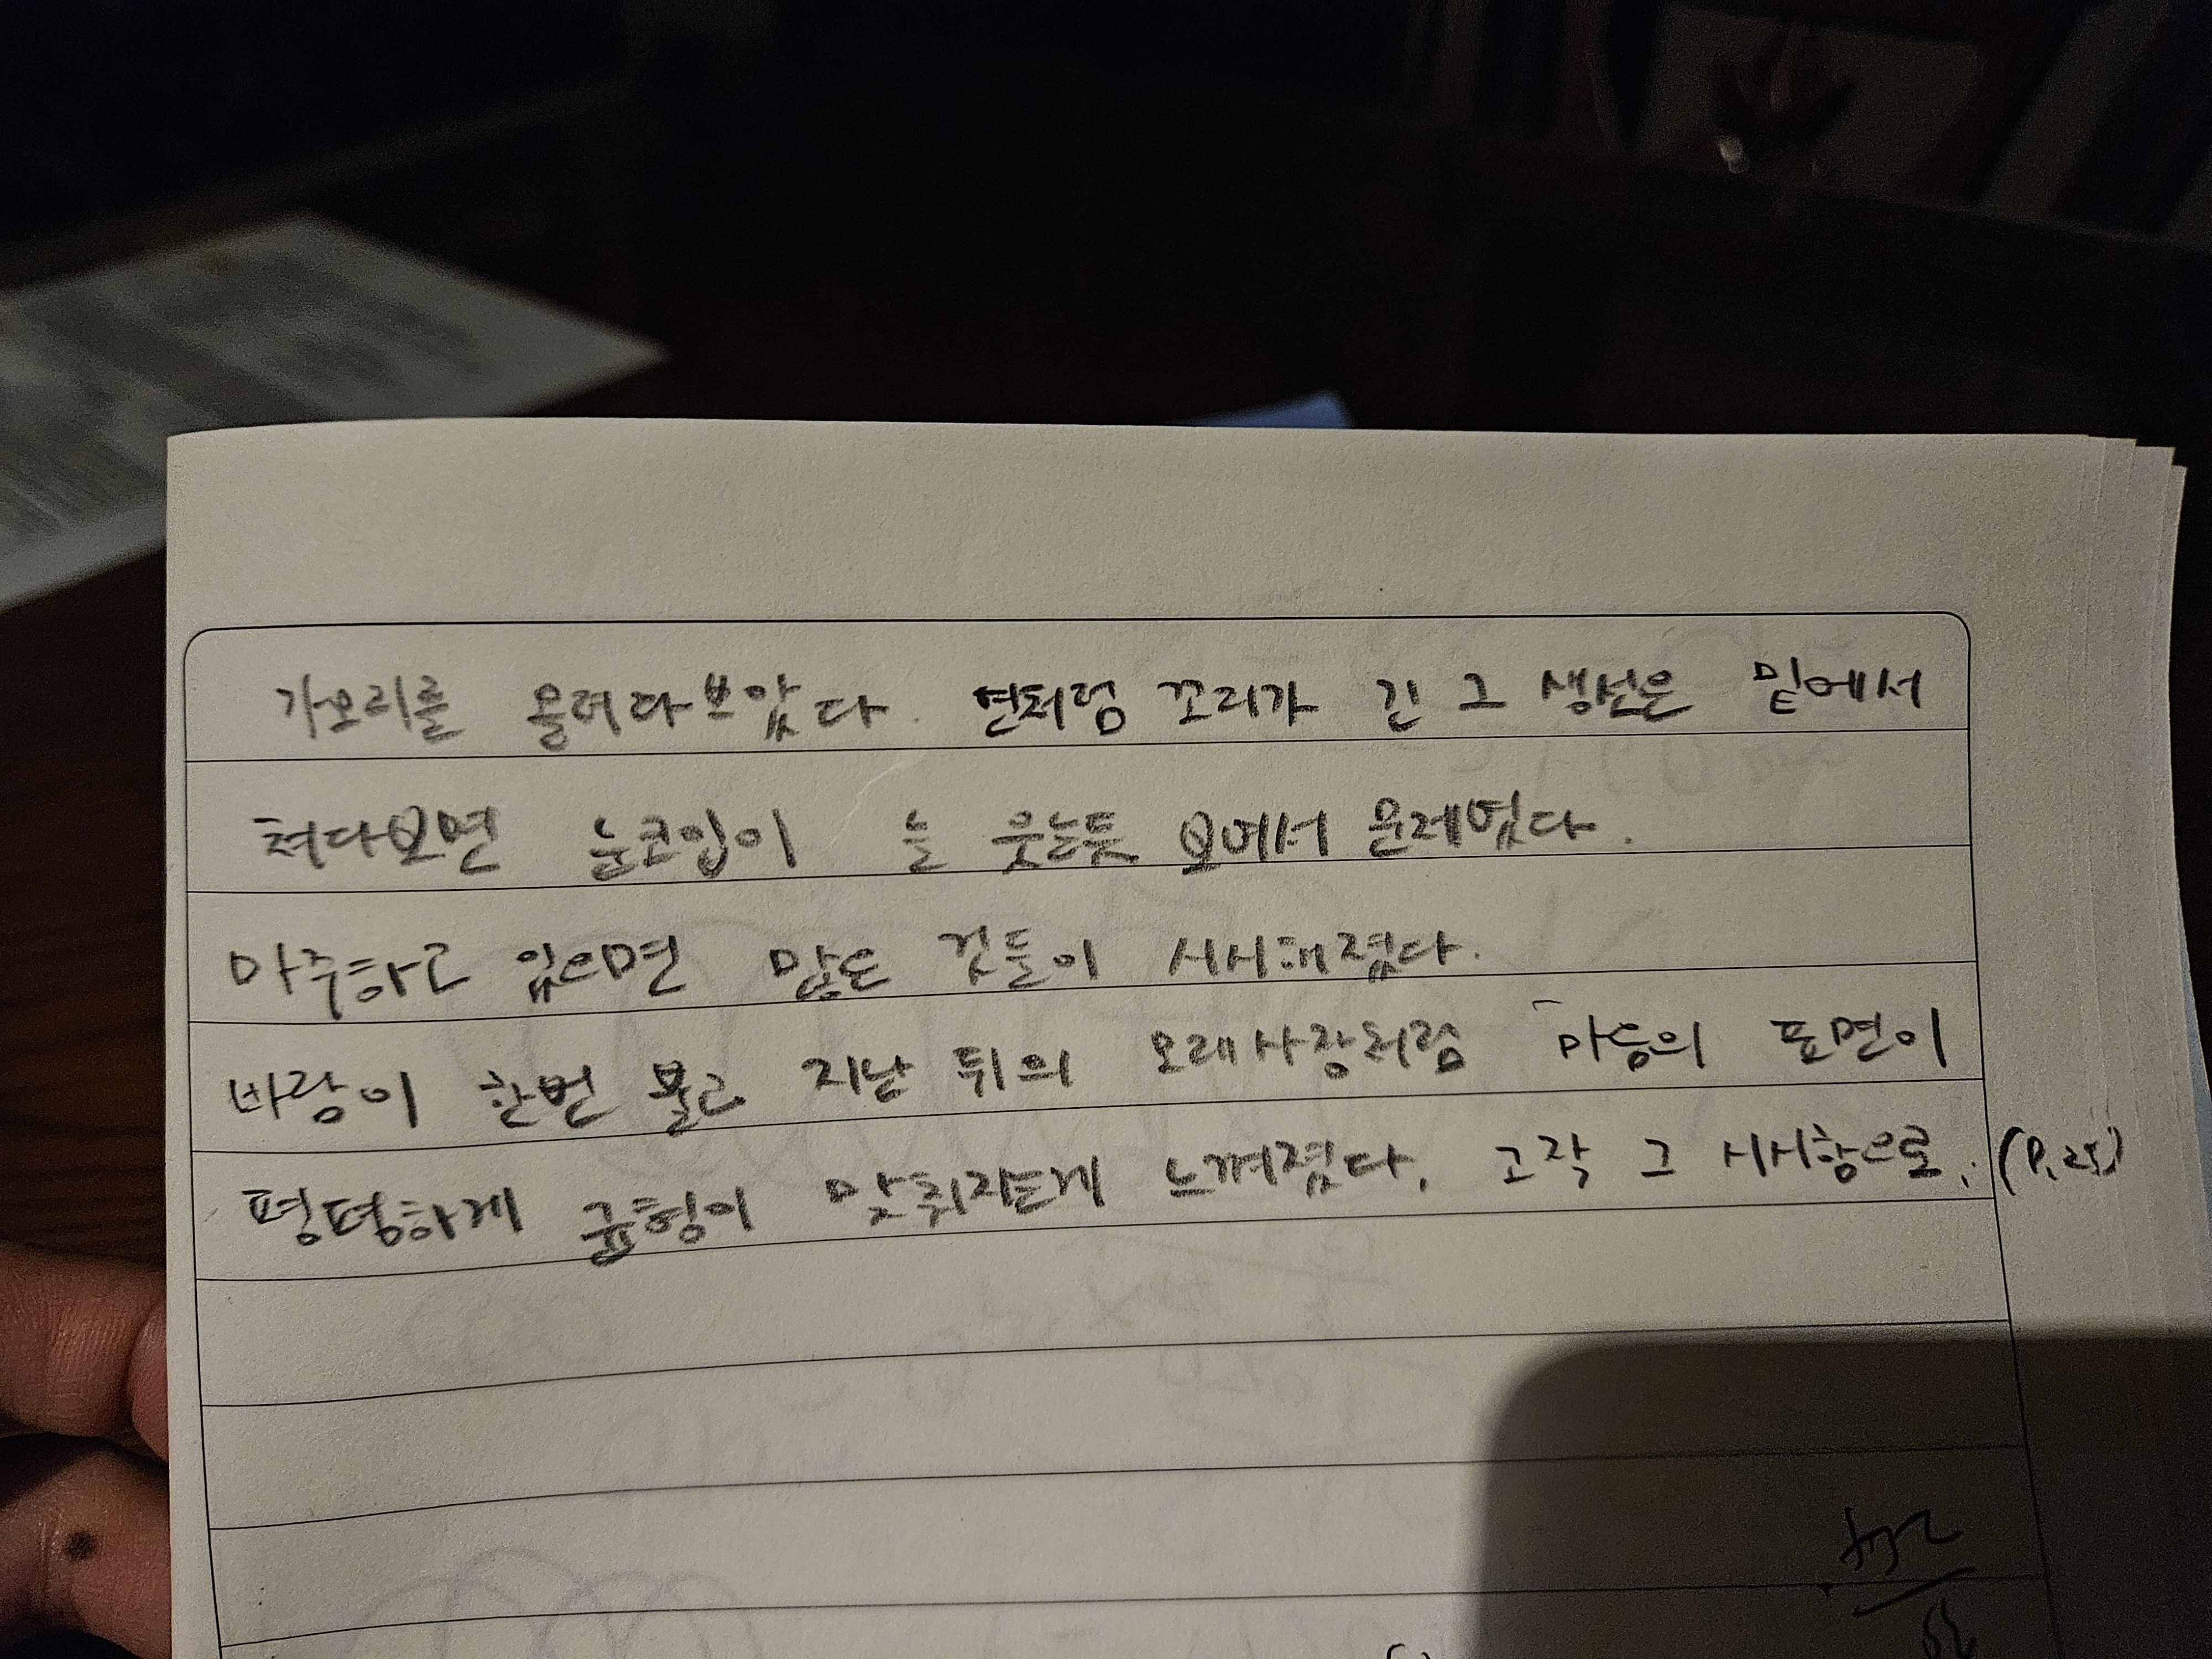 가오리를 올려다보았다. 연처럼 꼬리가 긴 그 생선은 밑에서
쳐다보면 눈코입이 늘 웃는듯 보여서
마주하고 있으면 많은 것들이 시시해졌다.
바람이 한번 불고 지난 뒤의 모래사장처럼 마음의 표면이
평평하게 균형이 맞춰지는게 느껴졌다. 고작 그 시시함으로. (P.25)